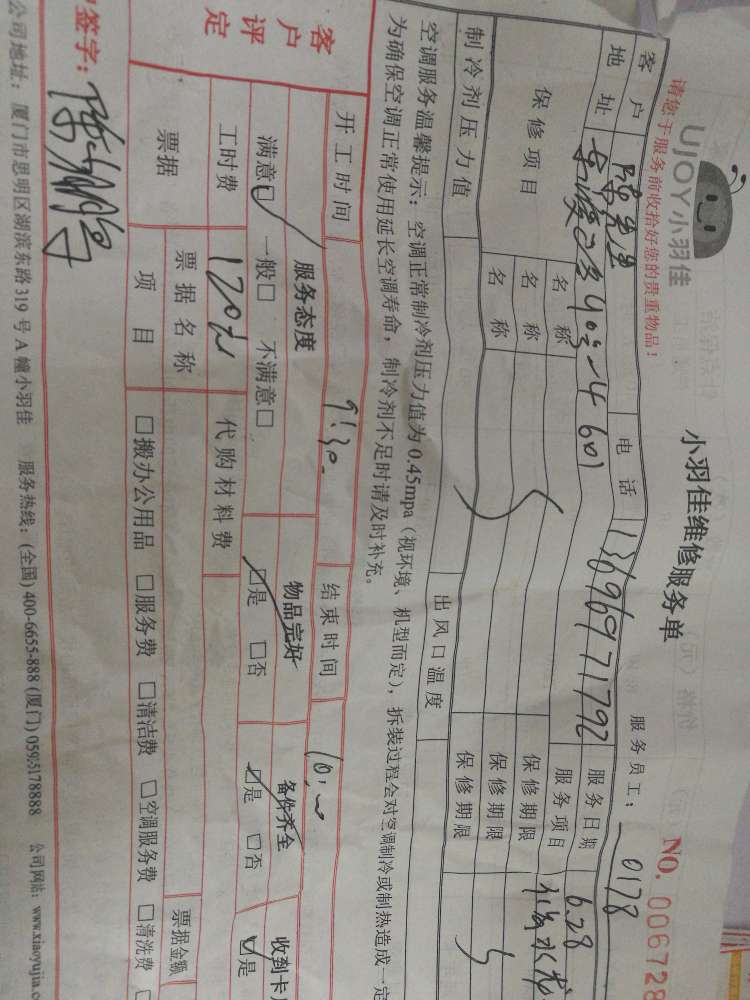 UJOY小羽佳
小羽佳维修服务单
NO. 006728
请您于服务前收拾好您的贵重物品!
服务员工: 0178
客户 陈先生 电话 13696971792 服务日期 6.28
地址 601 服务项目
保修项目 名称 保修期限
名称 保修期限
名称 保修期限
制冷剂压力值 出风口温度
空调服务温馨提示:空调正常制冷剂压力值为0.45mpa(视环境、机型而定),拆装过程会对空调制冷或制热造成一定
为确保空调正常使用延长空调寿命,制冷剂不足时请及时补充。
开工时间 9:30 结束时间 10:00
客户评定 服务态度 物品完好 备件齐全 收到卡
满意☑ 一般□ 不满意□ ☑是 □否 ☑是 □否 ☑是
工时费 120元 代购材料费
票据 票据名称 票据金额
项目 □搬办公用品 □服务费 □清洁费 □空调服务费 □清洗费
签字:
公司地址:厦门市思明区湖滨东路319号A幢小羽佳 服务热线:(全国)400-6655-888(厦门)0595178888 公司网站:www.xiaoyujia.com